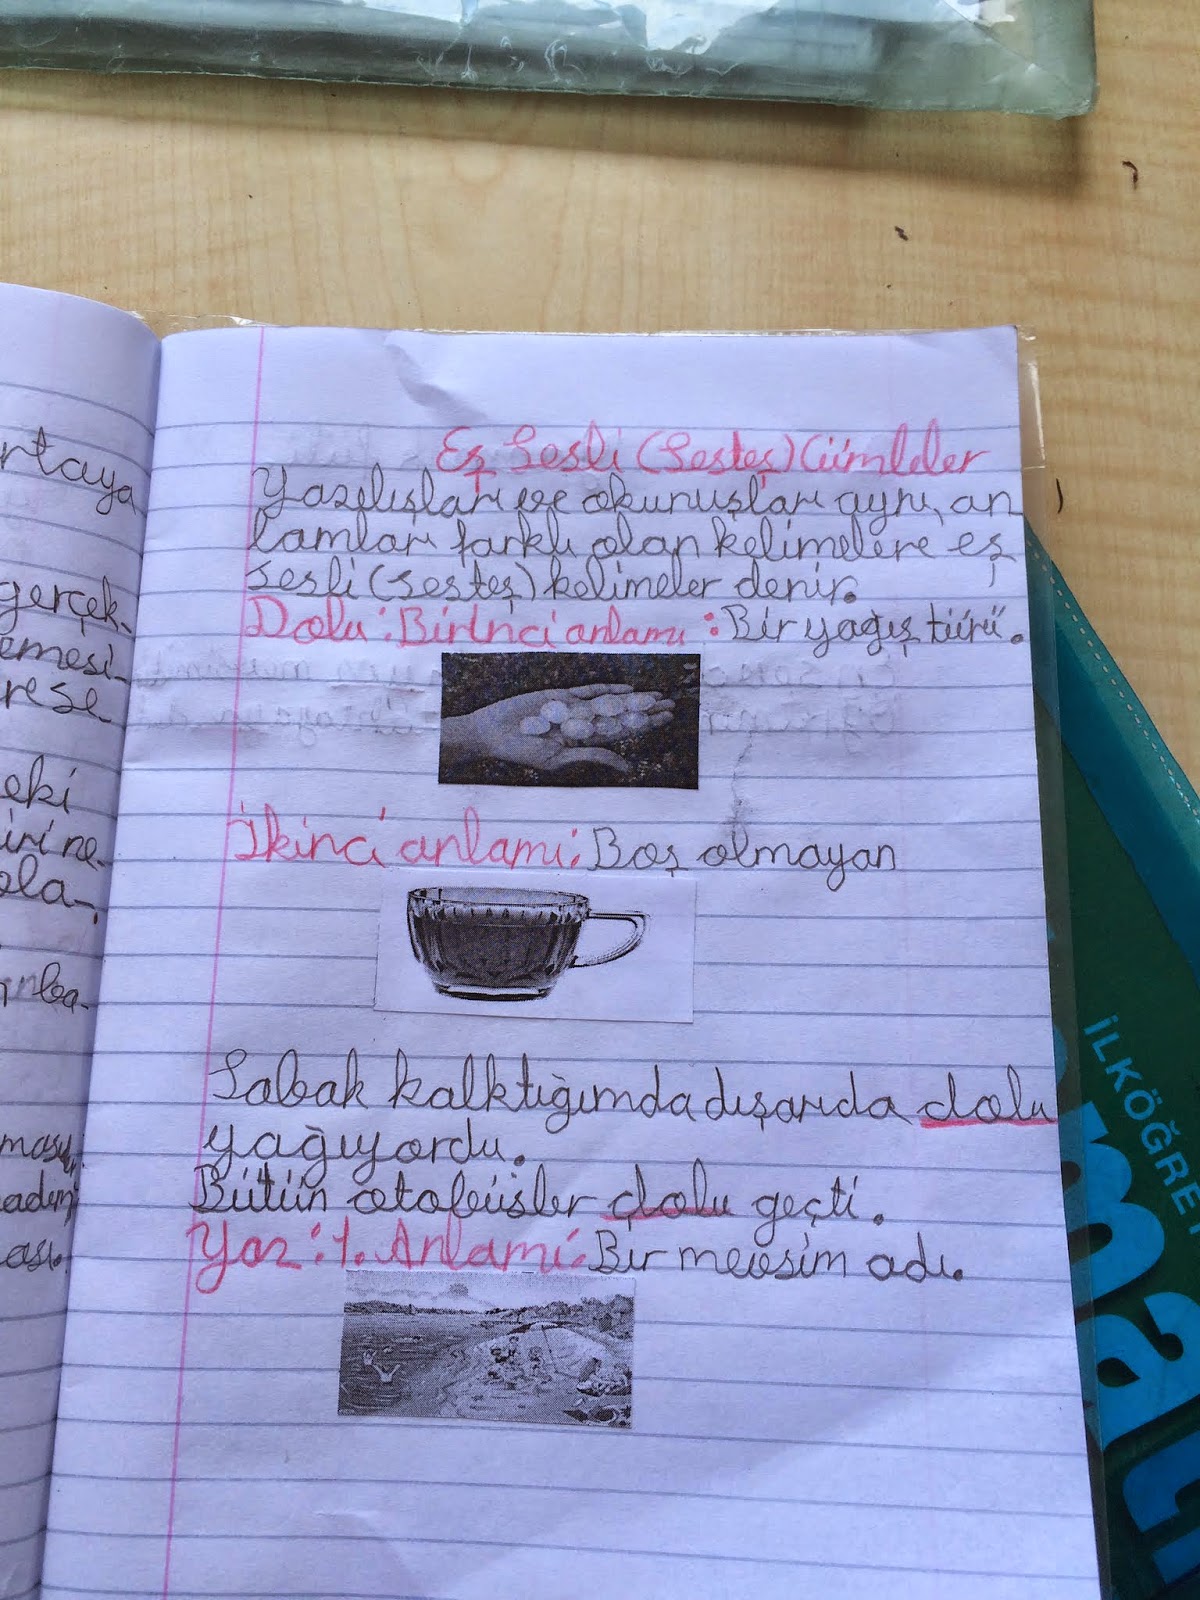 Eş Sesli (Sesteş) Cümleler
Yazılışları ve okunuşları aynı, an
lamları farklı olan kelimelere eş
sesli (sesteş) kelimeler denir.
Dolu: Birinci anlamı: Bir yağış türü.
İkinci anlamı: Boş olmayan
Sabah kalktığımda dışarıda dolu
yağıyordu.
Bütün otobüsler dolu geçti.
Yaz: 1. Anlamı: Bir mevsim adı.
rtaya
gerçek-
emesi-
rese
eki
iri ne-
ola-
adım
ası.
İLKÖĞRE
mat